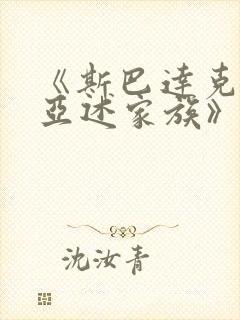 《斯巴达克
亚述家族》
沈汝青